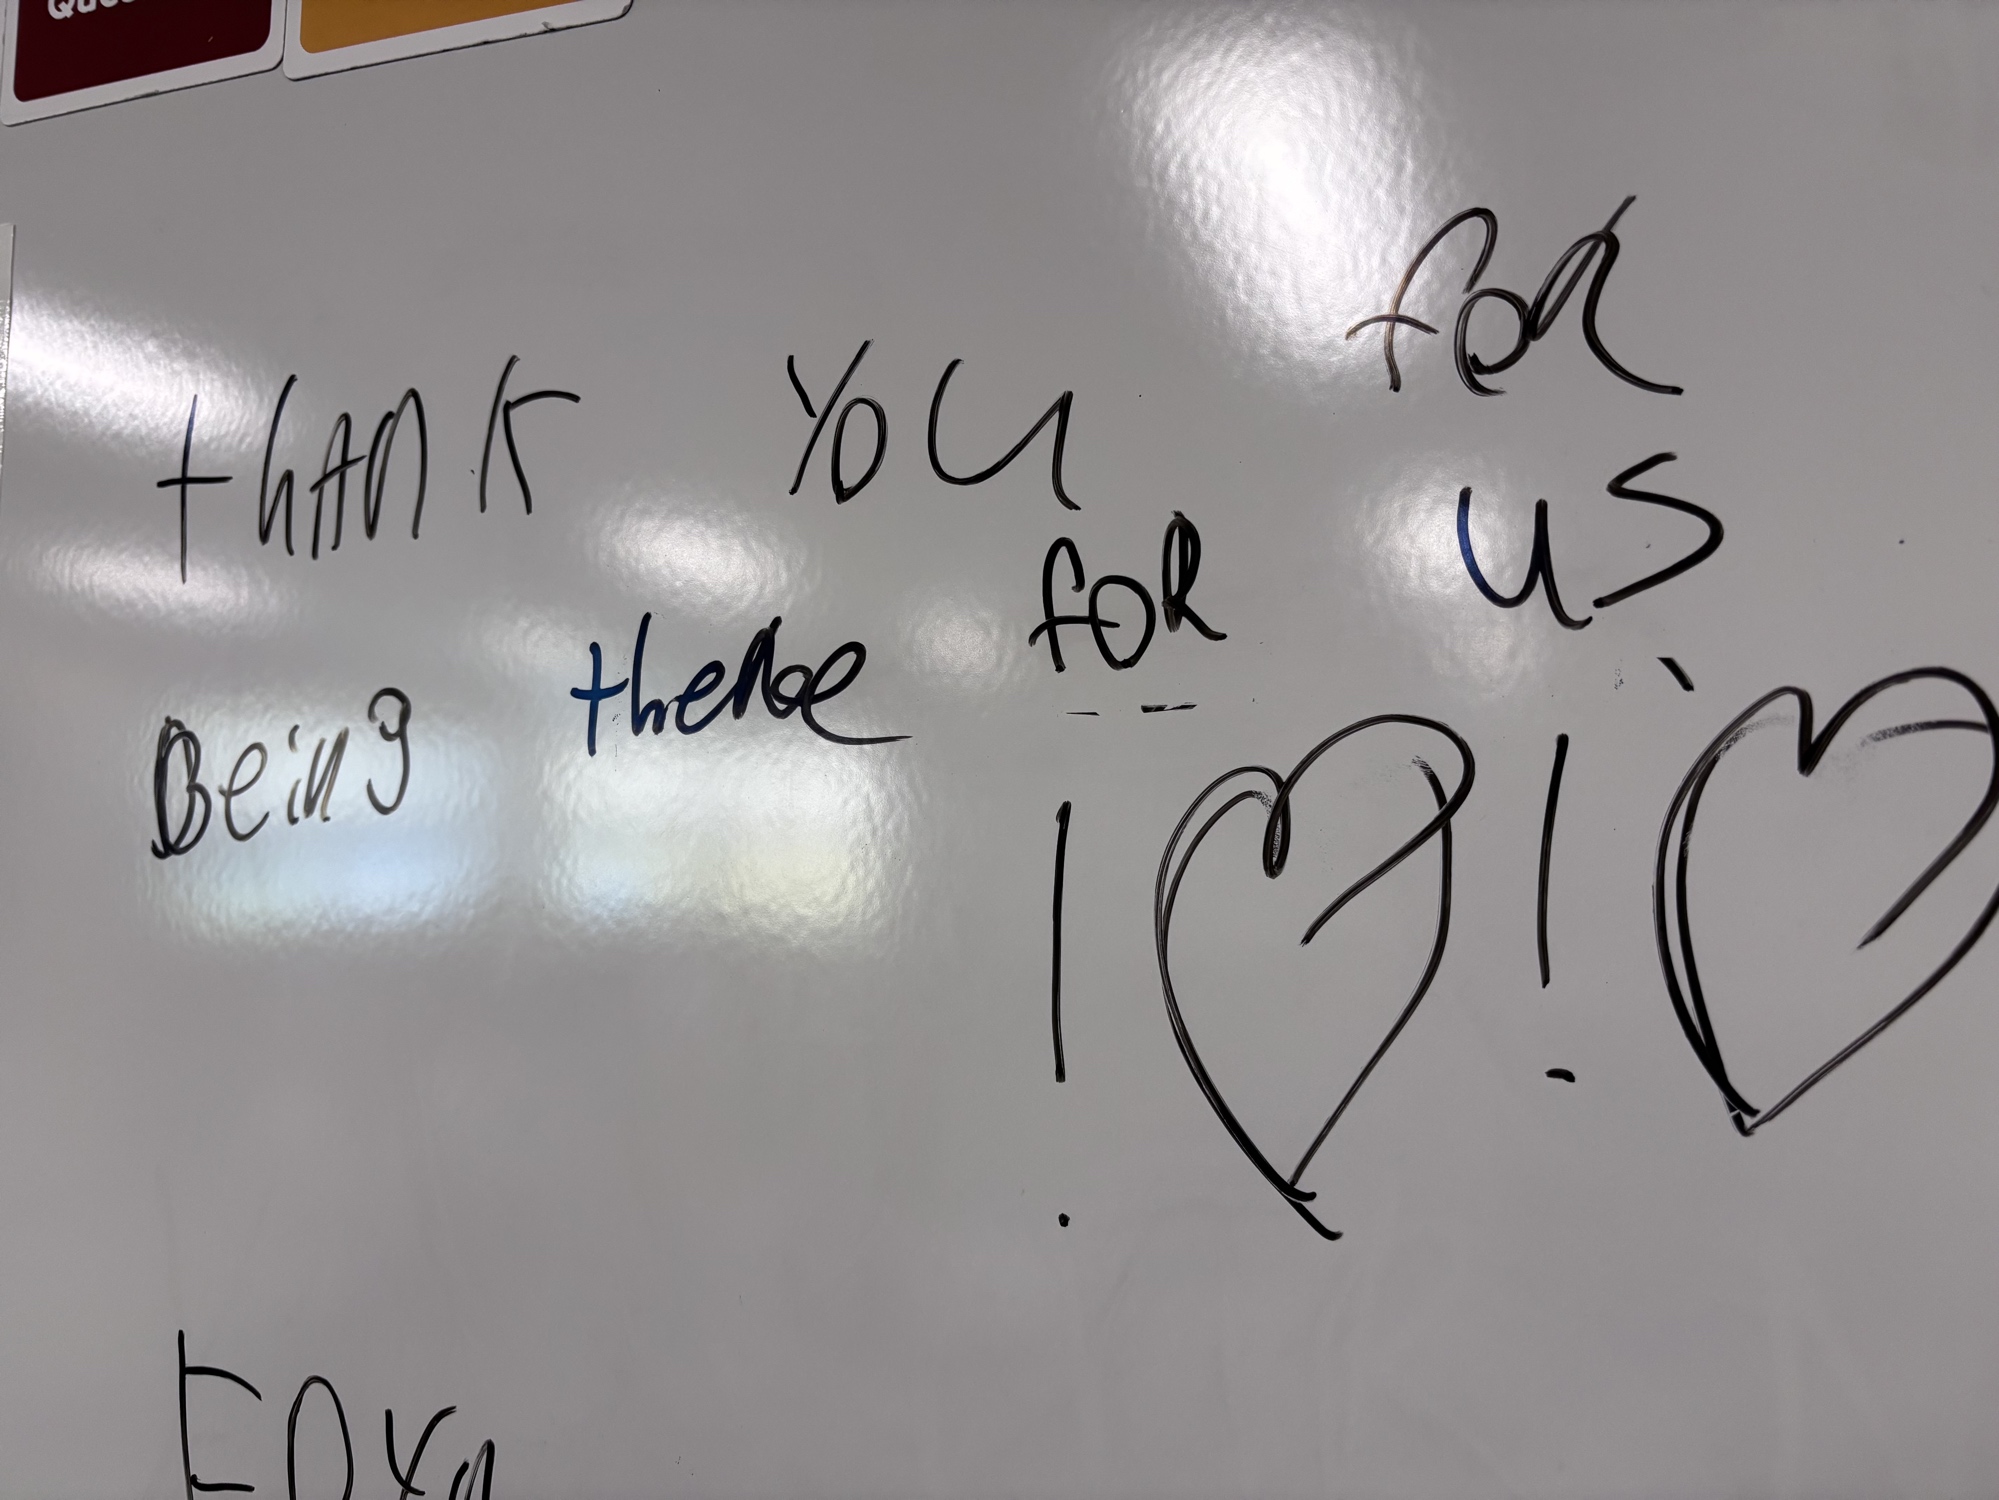 thANK YOU foR
Being there foR us
! ♡ ! ♡